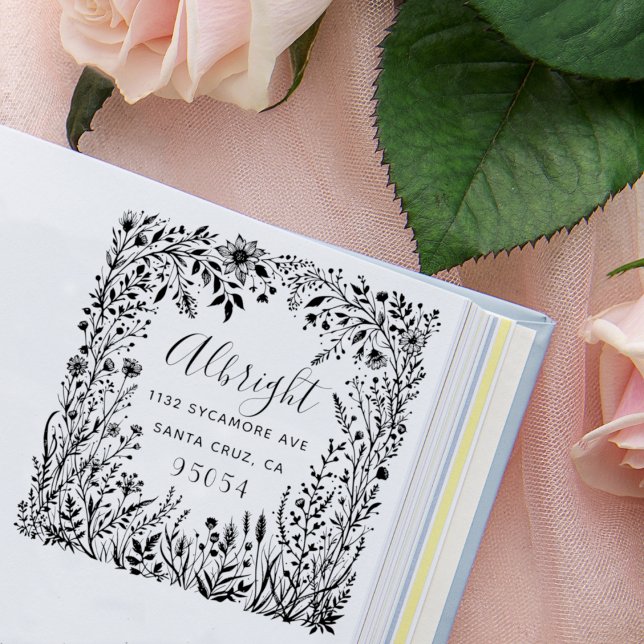 Albright
1132 SYCAMORE AVE
SANTA CRUZ, CA
95054